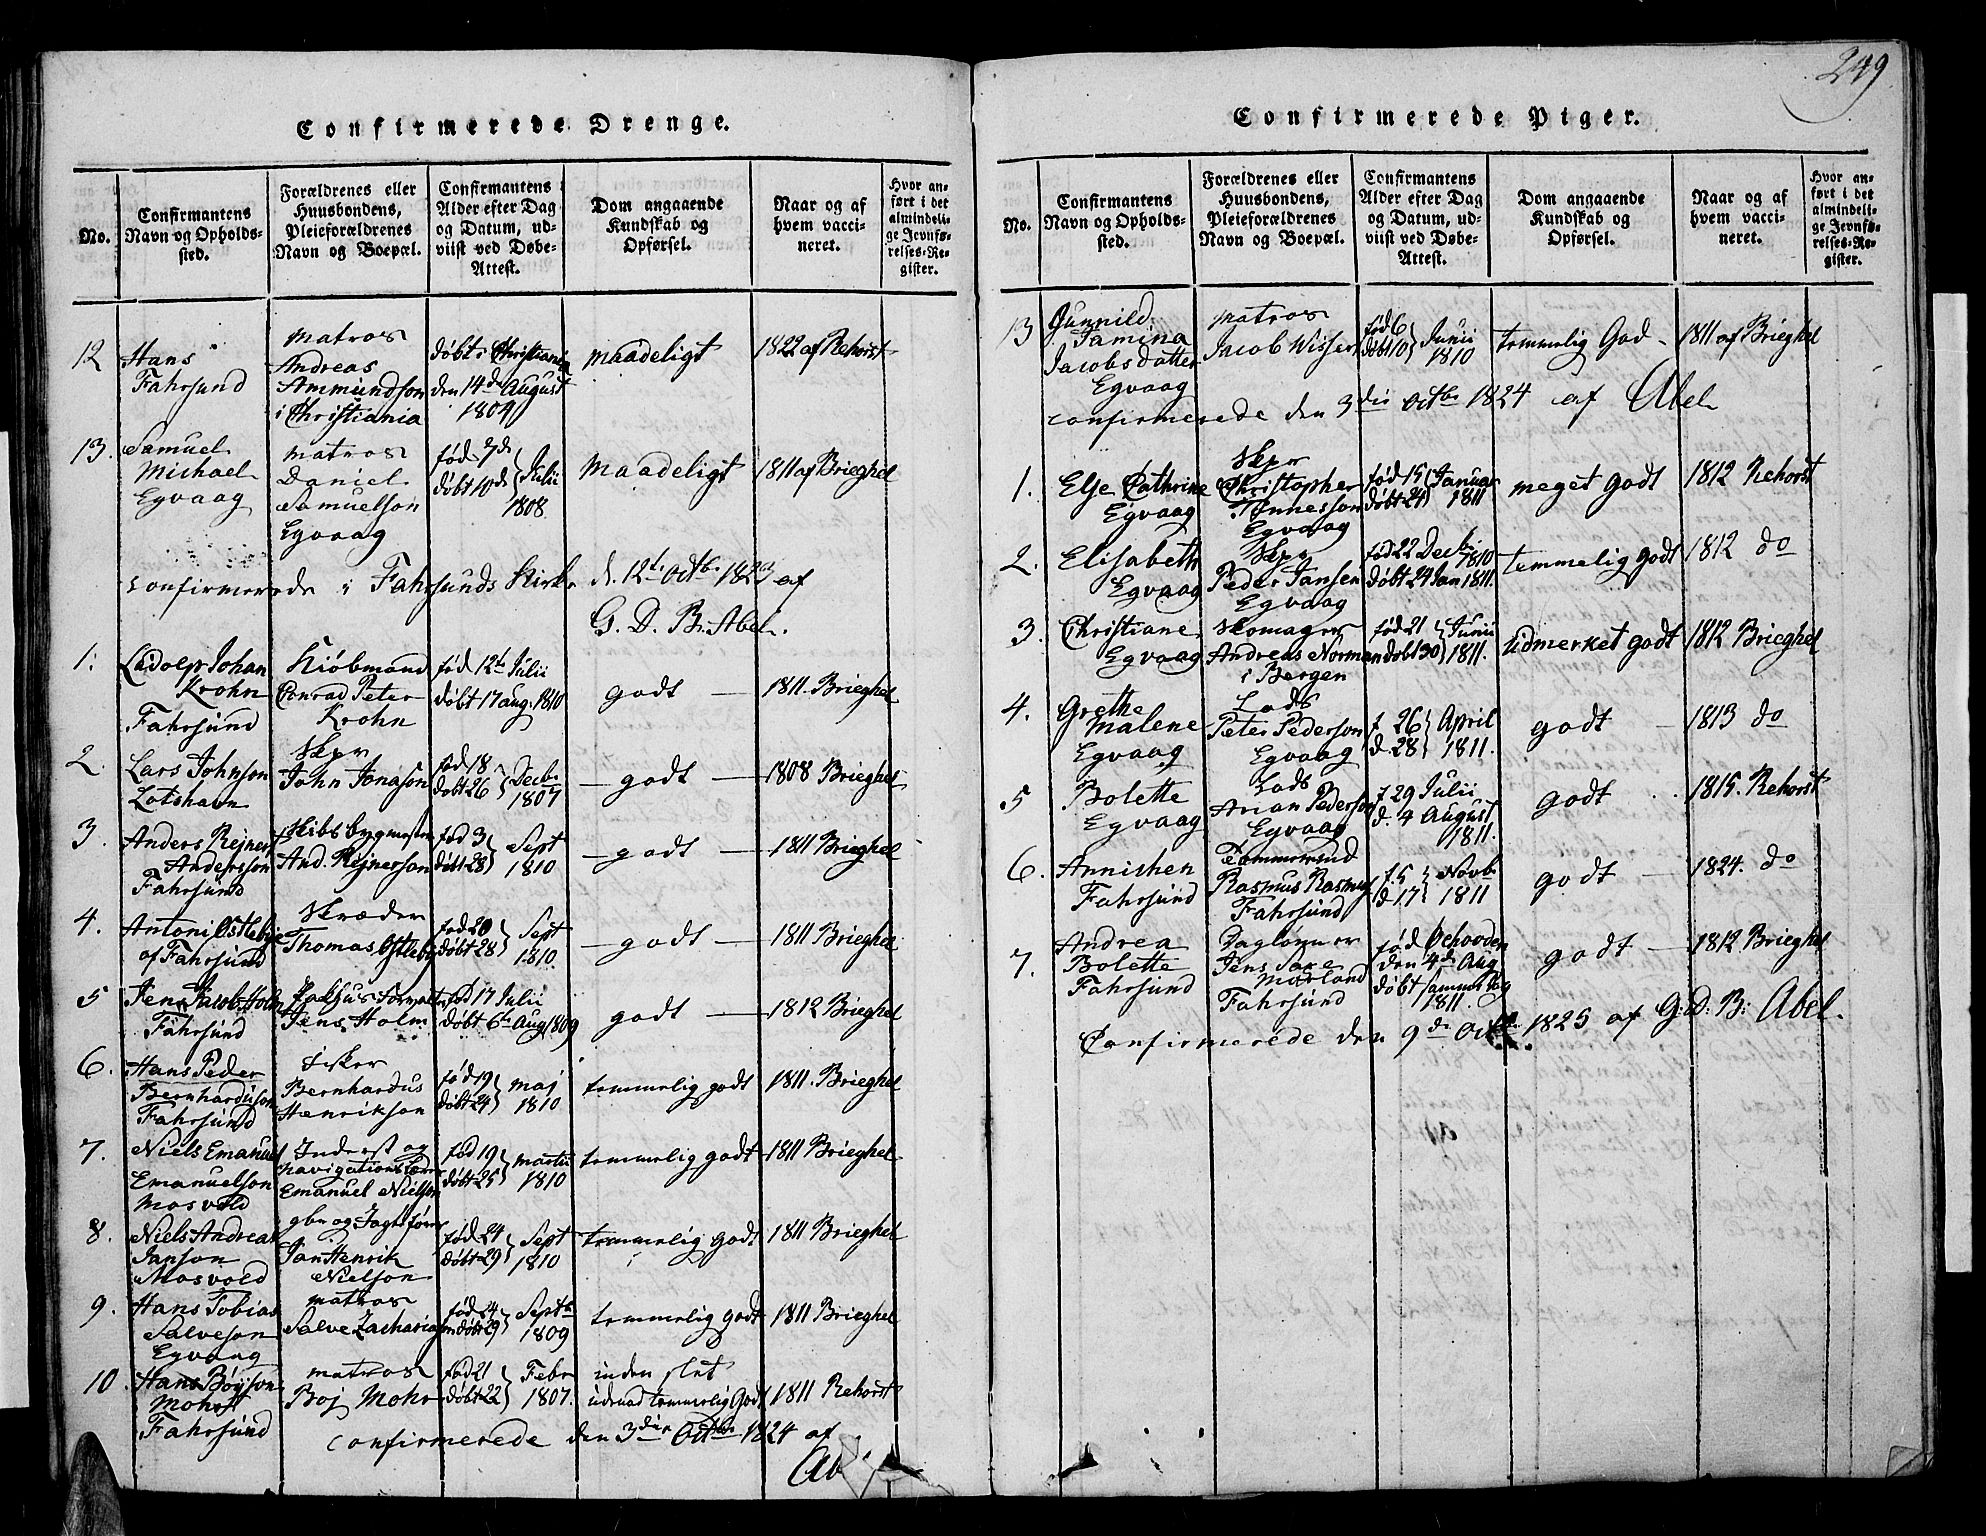 249
Confirmerede Drenge.
No.
Confirmantens Navn og Opholds-sted.
Forældrenes eller Huusbondens, Pleieforældrenes Navn og Boepæl.
Confirmantens Alder efter Dag og Datum, ud-viist ved Døbe-Attest.
Dom angaaende Kundskab og Opførsel.
Naar og af hvem vacci-neret.
Hvor an-ført i det almindeli-ge Jevnfø-relses-Re-gister.
12 Hans Fahrsund
matros Andreas Ammundson i Christiania
døbt i Christiania den 14de August 1809
maadeligt
1822 af Rehorst
13. Samuel Michael Egvaag
matros Daniel Samuelson Egvaag
fød 7de døbt 10de Julii 1808
maadeligt
1811 af Brieghel
confirmerede i Fahrsunds Kirke d. 12te octbr 1823 af
G. D. B. Abel.
1. Ludolph Johan Krohn Fahrsund
Kiøbmand Conrad Peter Krohn
fød 12te Julii døbt 17 aug. 1810
godt
1811. Brieghel
2. Lars Johnson Lotshavn
Skpr John Jonason
fød 18 døbt 26 Decbr 1807
godt
1808 Brieghel
3. Anders Rejnert Andersson Fahrsund
Skibsbygmester And. Rejnerson
fød 3 døbt 28 Sept 1810
godt
1811 Brieghel
4. Antoni Ostlebye af Fahrsund
Skræder Thomas Ostleby
fød 20 døbt 28 Sept 1810
godt
1811 Brieghel
5 Jens Jacob Holm Fahrsund
Jens Holm
fød 17 Julii døbt 6te Aug 1809
godt
1812 Brieghel
6. Hans Peder Bernhardusson Fahrsund
fisker Bernhardus Henrikson
fød 19 døbt 24 maj 1810
temmelig godt
1811. Brieghel
7. Niels Emanuel Emanuelson Mosvold
Inderst og navigationslærer Emanuel Nielson
fød 19 døbt 25 martii 1810
temmelig godt
1811 Brieghel
8. Niels Andreas Janson Mosvold
gbr og Jagtefører Jan Henrik Nielson
fød 24 døbt 29 Sept 1810
temmelig godt
1811 Brieghel
9. Hans Tobias Salveson Egvaag
matros Salve Zachariason
fød 24 døbt 29 Septbr 1809
temmelig godt
1811 Brieghel
10. Hans Böyson Mohr Fahrsund
matros Boj Mohr
fød 21 døbt 22 Febr 1807.
inden slet udenad temmelig Godt
1811 Rehorst
confirmerede den 3die Octbr 1824 af
Ab
Confirmerede Piger.
No.
Confirmantens Navn og Opholds-sted.
Forældrenes eller Huusbondens, Pleieforældrenes Navn og Boepæl.
Confirmantens Alder efter Dag og Datum, ud-viist ved Døbe-Attest.
Dom angaaende Kundskab og Opførsel.
Naar og af hvem vacci-neret.
Hvor an-ført i det almindeli-ge Jevnfø-relses-Re-gister.
13 Gunnild Tamina Jacobsdatter Egvaag
matros Jacob Wisser
fød 6 døbt 10 Junii 1810
temmelig God
1811 af Brieghel
confirmerede den 3die octbr 1824 af Abel
1. Else Cathrine Egvaag
Skpr Christopher Tønnesson Egvaag
fød 15 døbt 24 Januar 1811
meget godt
1812 Rehorst
2. Elisabeth Egvaag
Skpr Peder Jansen Egvaag
fød 22 Decbr 1810 døbt 24 Jan 1811.
temmelig godt
1812 do
3. Christiane Egvaag
Skomager Andreas Norman i Bergen
fød 21 døbt 30 Junii 1811.
udmerket godt
1812 Brieghel
4. Grethe Malene Egvaag
Lods Peter Pederson Egvaag
f. 26 d. 28 April 1811.
godt
1813 do
5 Bolette Egvaag
Lods Arian Pederson Egvaag
f. 29 Julii d. 4 August 1811.
godt
1815. Rehorst
6. Annichen Fahrsund
Tømmersvd Rasmus Rasmus Fahrsund
f. 5 d. 17 Novbr 1811
godt
1824. do
7. Andrea Bolette Fahrsund
Daglønner Jens Saxe Mørland Fahrsund
fød den 4de Aug døbt samme Dag 1811.
godt
1812 Brieghel
Confirmerede den 9de Octbr 1825 af G. D. B. Abel.